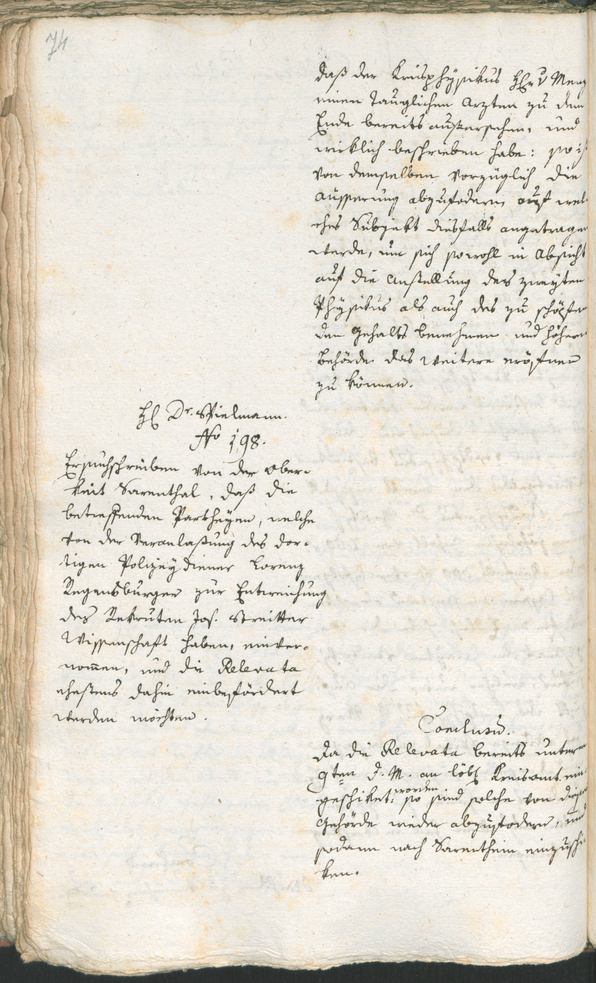 74
daß der Kreisphysikus H. v Menz
einen tauglichen Arzten zu dem
Ende bereits ausersehen, und
wirklich beschrieben habe: so ist
von demselben vorzüglich die
Äusserung abzufodern, auf wel
ches Subjekt diesfalls angetragen
werde, um sich sowohl in Absicht
auf die Anstellung des zweyten
Physikus als auch des zu schöpfen
den Gehalts benehmen und höhern
Behörde das weitere eröffnen
zu können.
H Dr. Spielmann.
No 198.
Ersuchschreiben von der Ober-
keit Sarenthal, daß die
betreffenden Partheyen, welche
von der Veranlaßung des dor-
tigen Polizeydiener Lorenz
Regensburger zur Entweichung
des Rekruten Jos. Streitter
Wissenschaft haben, einver-
nommen, und die Relevata
ehestens dahin einbefördert
werden möchten.
Conclusu.
Da die Relevata bereits unterm
9ten d. M. an löbl Kreisamt ein
geschiket worden, so sind solche von dieser
Behörde wieder abzufodern, und
sodann nach Sarenthein einzuschi
ken.